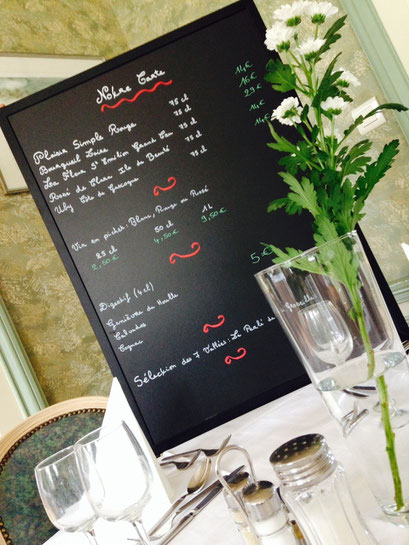 Notre Carte
Plaisir Simple Rouge 75 cl 14€
Bourgueil Loire 75 cl 16€
La Fleur St Emilion Grand Cru 75 cl 29€
Rosé de Elan Ile de Beauté 75 cl 14€
Uby Côte de Gascogne 75 cl 14€
Vin en pichet: Blanc, Rouge ou Rosé
25 cl 50 cl 1L
2,50€ 4,50€ 9,50€
Digestif (4cl) 5€
Genièvre de Houlle
Calvados
Cognac
Sélection des 7 Vallées: La